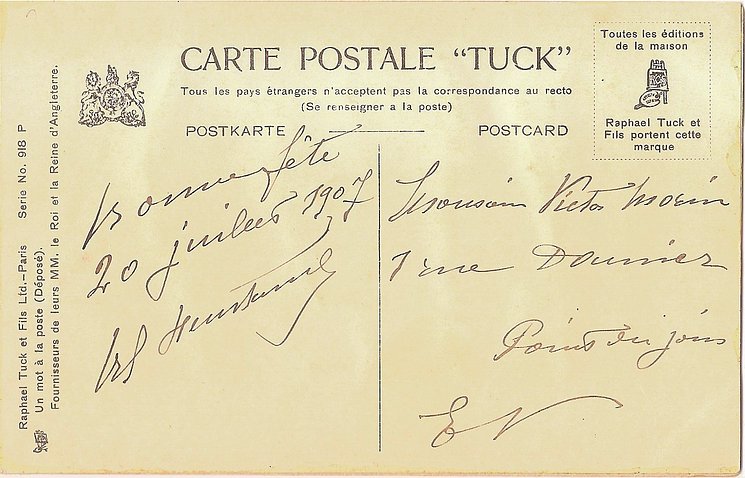 CARTE POSTALE “TUCK”
Tous les pays étrangers n'acceptent pas la correspondance au recto
(Se renseigner a la poste)
POSTKARTE
POSTCARD
Toutes les éditions
de la maison
Raphael Tuck et
Fils portent cette
marque
Raphael Tuck et Fils Ltd.-Paris Serie No. 918 P
Un mot à la poste (Déposé).
Fournisseurs de leurs MM. le Roi et la Reine d'Angleterre.
Bonne fête
20 juillet 1907
Monsieur Victor Morin
1 rue Daumier
Point du jour
E V